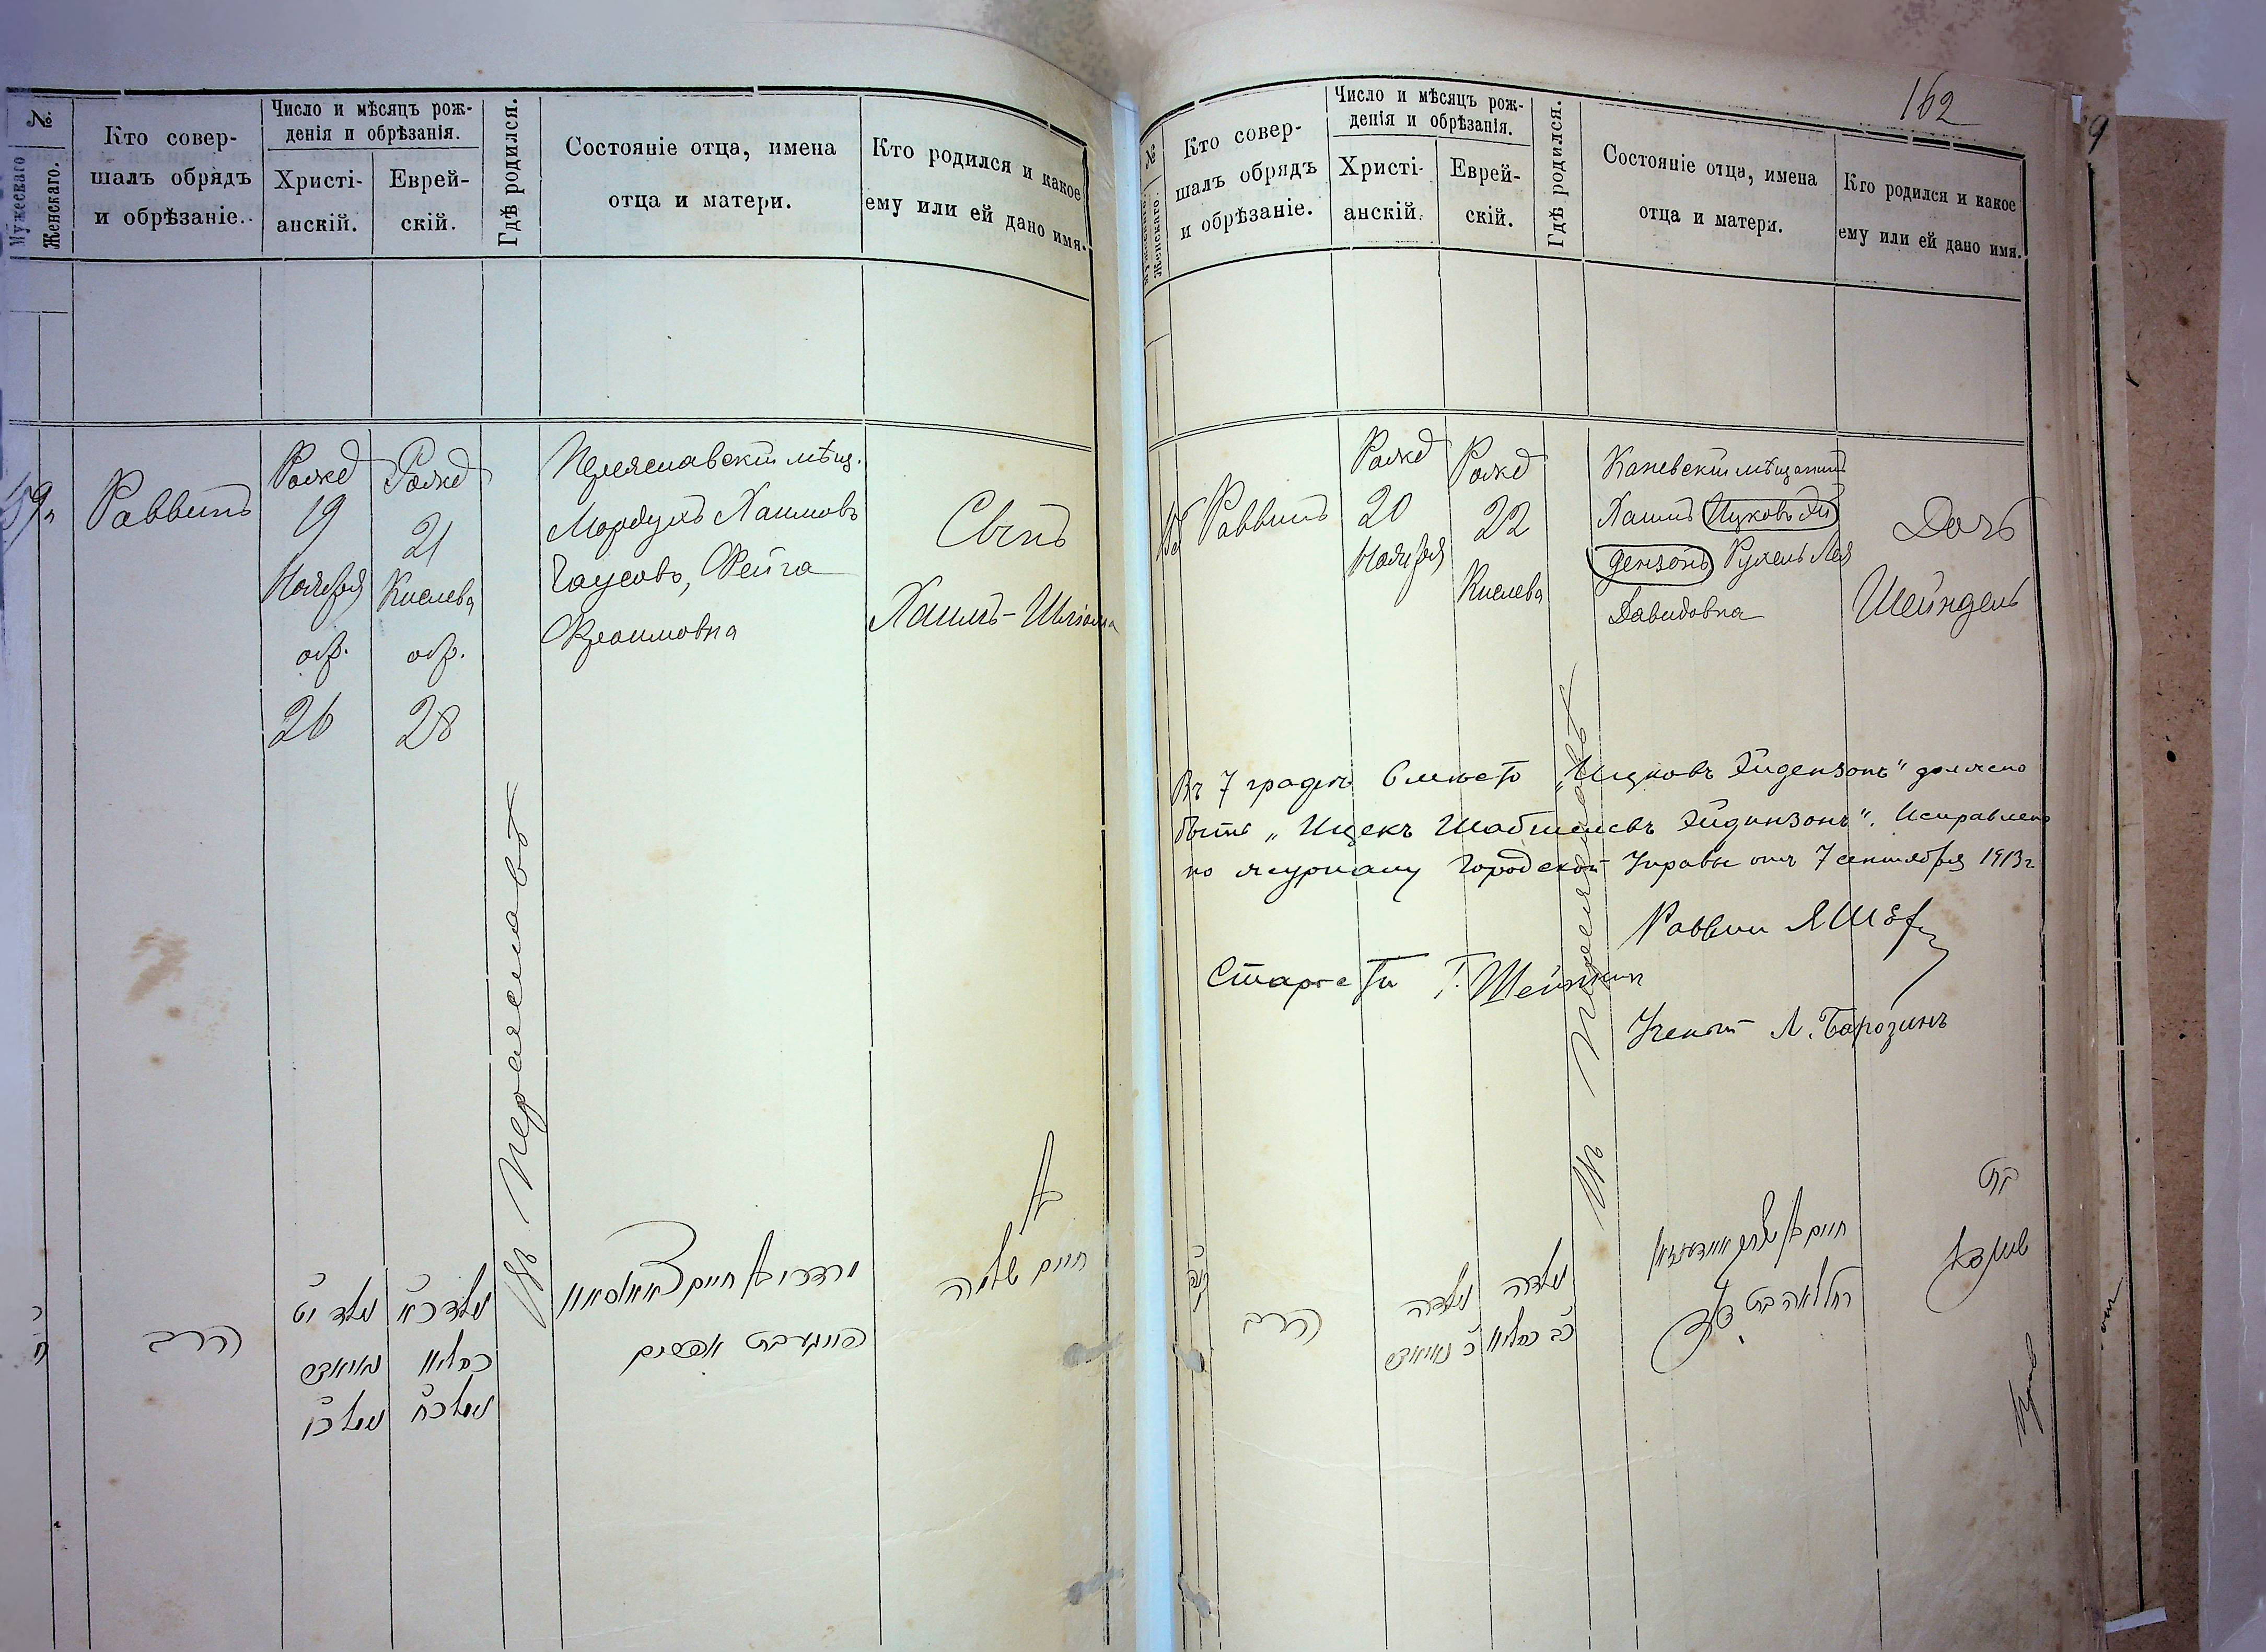 №
Мужескаго
Женскаго.
Кто совер-
шалъ обрядъ
и обрѣзаніе.
Число и мѣсяцъ рож-
денія и обрѣзанія.
Христі-
анскій.
Еврей-
скій.
Гдѣ родился.
Состояніе отца, имена
отца и матери.
Кто родился и какое
ему или ей дано имя.
Раввинъ
Рожд
19
Ноября
обр.
26
Рожд
21
Кислева
обр.
28
Въ Переяславѣ
Переяславскій мѣщ.
Мордухъ Хаимовъ
Фейга
Фроимовна
Сынъ
Хаимъ-Шлiома
הרב
נולד יט
נאיאבר
נולד כא
כסליו
חיים שלמה
162
№
Женскаго.
Кто совер-
шалъ обрядъ
и обрѣзаніе.
Число и мѣсяцъ рож-
денія и обрѣзанія.
Христі-
анскій.
Еврей-
скій.
Гдѣ родился.
Состояніе отца, имена
отца и матери.
Кто родился и какое
ему или ей дано имя.
Раввинъ
Рожд
20
Ноября
Рожд
22
Кислева
Въ Переяславѣ
Каневскій мѣщанинъ
Хаимъ Ицковъ Эй
дензонъ Рухель Лея
Давидовна
Дочь
Шейндель
Въ 7 графѣ вмѣсто „Ицковъ Эйдензонъ" должно
быть „Ицекъ Шабшелевъ Эйдинзонъ". Исправлено
по журналу Городской Управы отъ 7 сентября 1913 г
Раввин
Староста Г. Шейнкин
Ученый Л. Барозинъ
הרב
נולדה
כ נאיאבר
נולדה
כב כסליו
בת